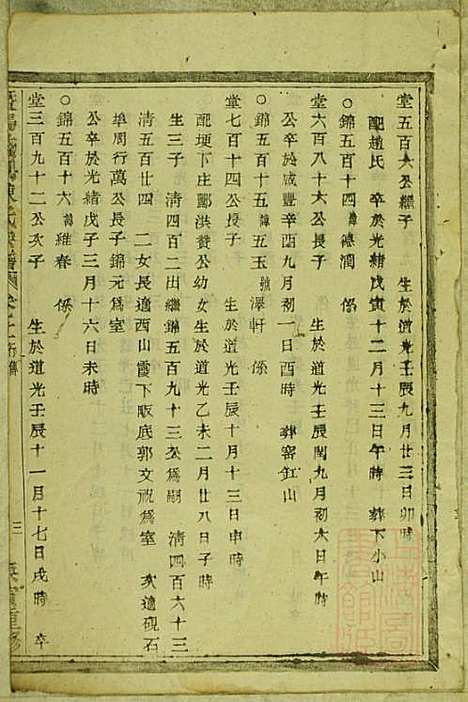 堂五百六公繼子 生於道光壬辰九月廿三日卯時
配趙氏 卒於光緒戊寅十二月十三日午時 葬下小山
○錦五百十四 諱德潤 係
堂六百八十六公長子 生於道光壬辰閏九月初六日午時
公卒於咸豐辛酉九月初一日酉時 葬窰缸山
○錦五百十五 諱五玉 號澤軒 係
堂七百十四公長子 生於道光壬辰十月十三日申時
配埂下庄酈洪贊公幼女生於道光乙未二月廿八日子時
生三子 清四百十二出繼錦五百九十三公為嗣 清四百六十三
清五百廿四 二女長適西山霞下畈底郭文祝為室 次適硯石
阜周行萬公長子錦元為室
公卒於光緒戊子三月十六日未時
○錦五百十六 諱維春 係
堂三百九十二公次子 生於道光壬辰十一月十七日戌時 卒
三
重修